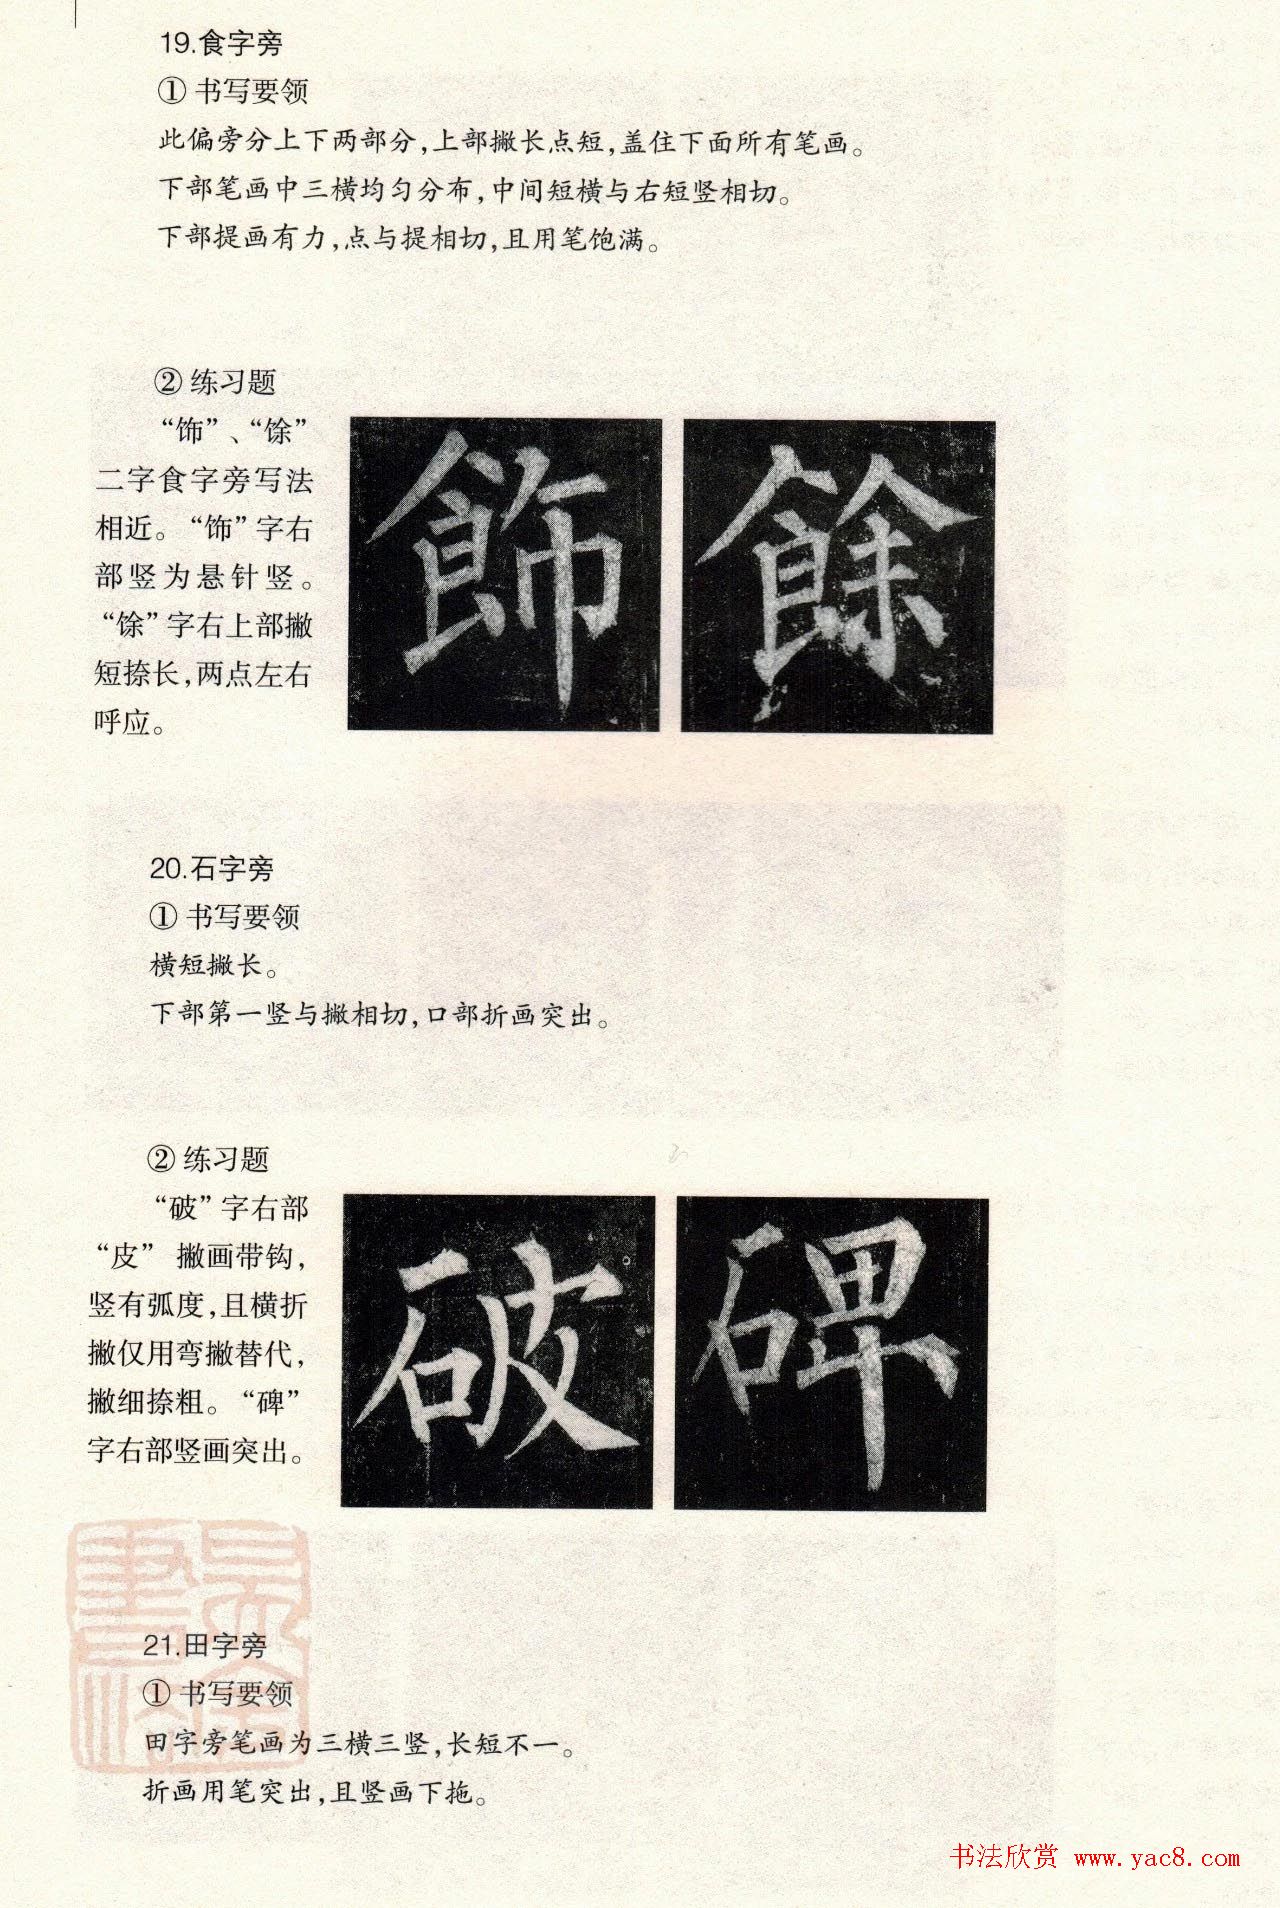 19.食字旁
① 书写要领
此偏旁分上下两部分，上部撇长点短，盖住下面所有笔画。
下部笔画中三横均匀分布，中间短横与右短竖相切。
下部提画有力，点与提相切，且用笔饱满。
② 练习题
“饰”、“馀”
二字食字旁写法
相近。“饰”字右
部竖为悬针竖。
“馀”字右上部撇
短捺长，两点左右
呼应。
飾
餘
20.石字旁
① 书写要领
横短撇长。
下部第一竖与撇相切，口部折画突出。
② 练习题
“破”字右部
“皮”撇画带钩，
竖有弧度，且横折
撇仅用弯撇替代，
撇细捺粗。“碑”
字右部竖画突出。
破
碑
21.田字旁
① 书写要领
田字旁笔画为三横三竖，长短不一。
折画用笔突出，且竖画下拖。
书法欣赏 www.yac8.com